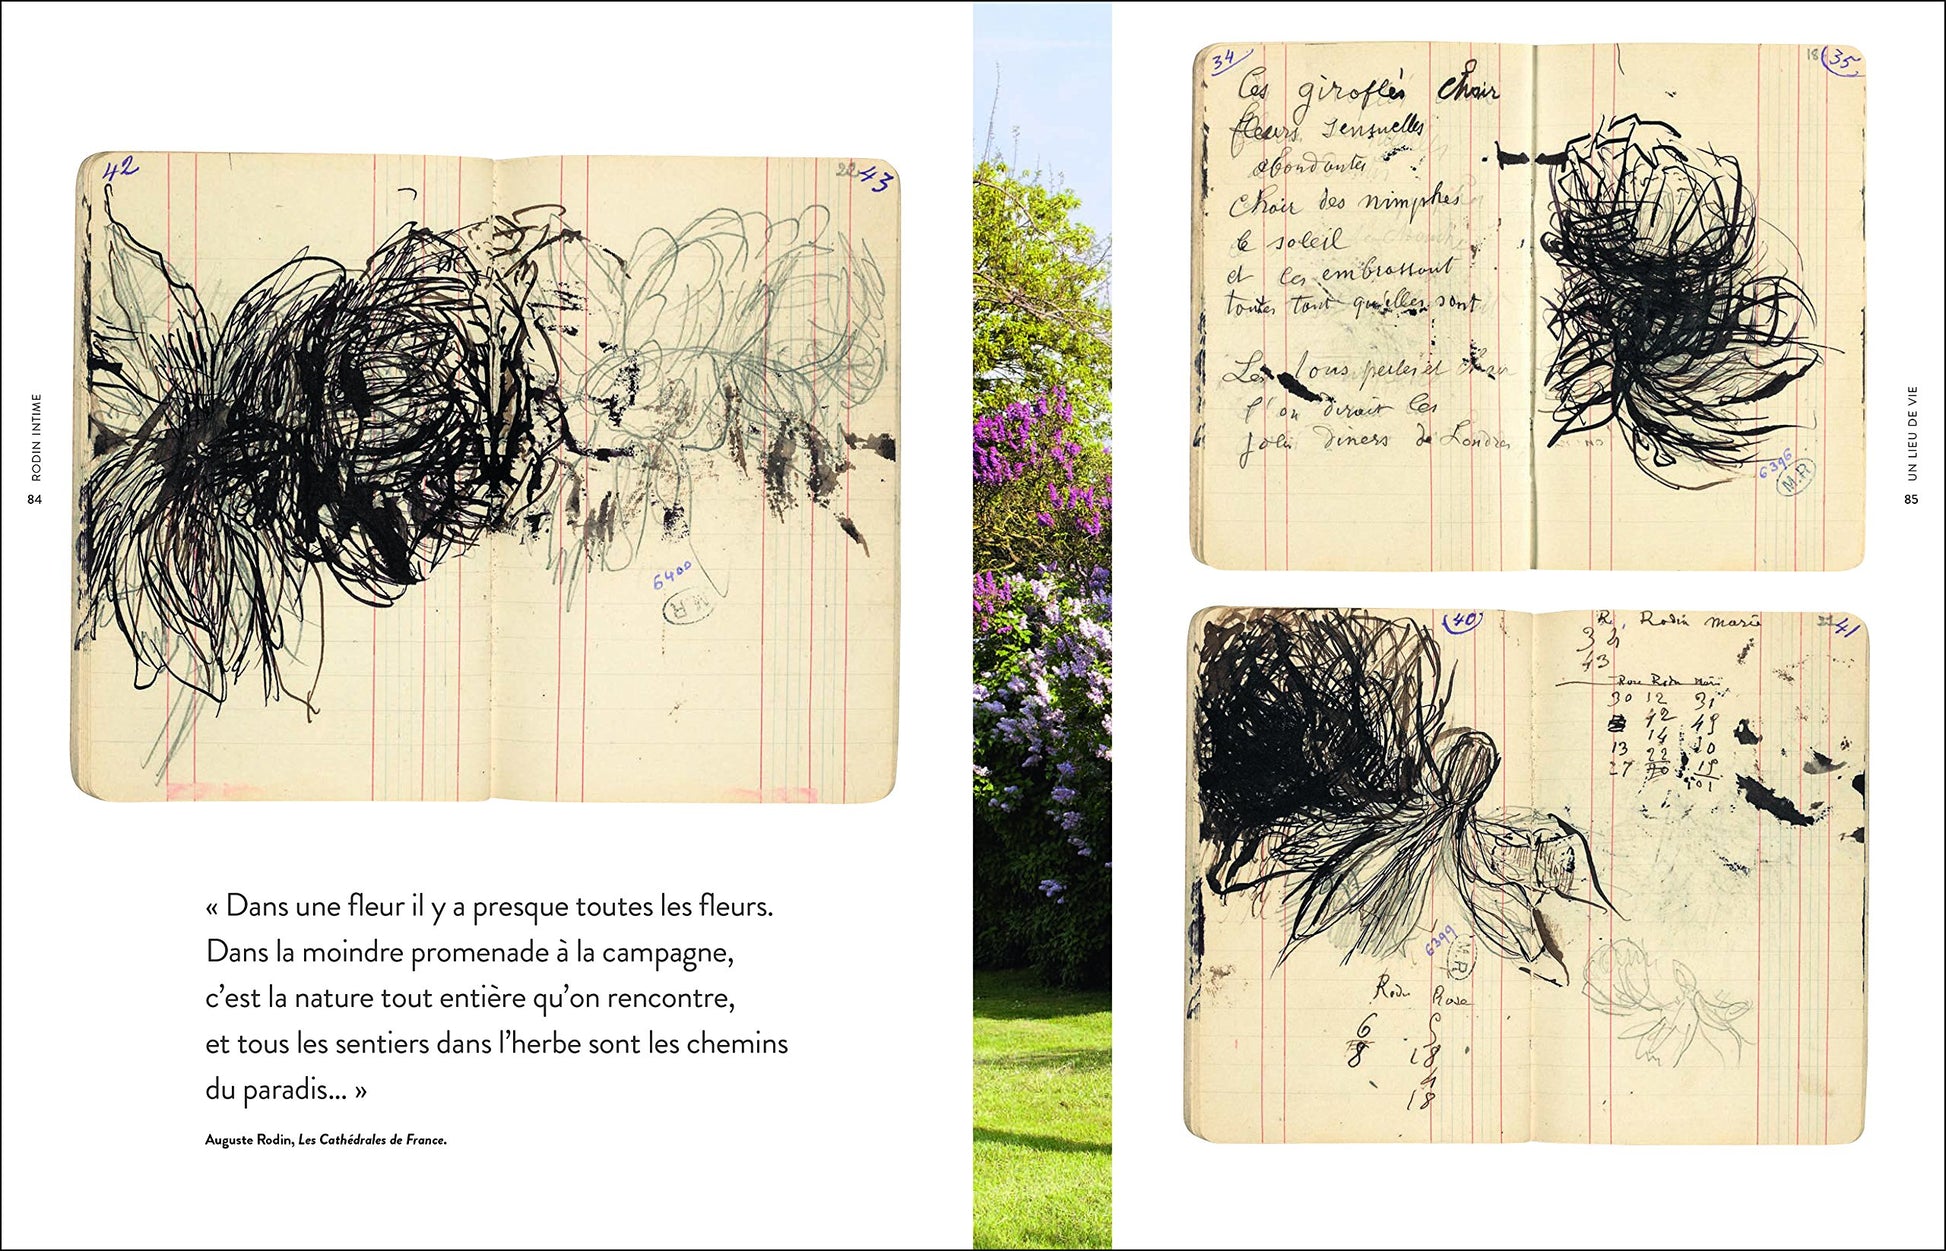 RODIN INTIME
84
42
22 43
6400
M.R
« Dans une fleur il y a presque toutes les fleurs.
Dans la moindre promenade à la campagne,
c’est la nature tout entière qu’on rencontre,
et tous les sentiers dans l’herbe sont les chemins
du paradis... »
Auguste Rodin, Les Cathédrales de France.
34
Ces giroflés chair
fleurs sensuelles
abondantes
chair des nimphes
le soleil
et les embrassent
toutes tant qu'elles sont
Les tons perles et chair
l'on dirait les
jolis diners de Londres
18 35
6396
M.R
40
6399
M.R
Rodin Rose
6
8 18
4
18
41
R. Rodin marie
43
Rose Rodin
30 12 31
42 49
14 10
13 22
27 19
101
UN LIEU DE VIE
85